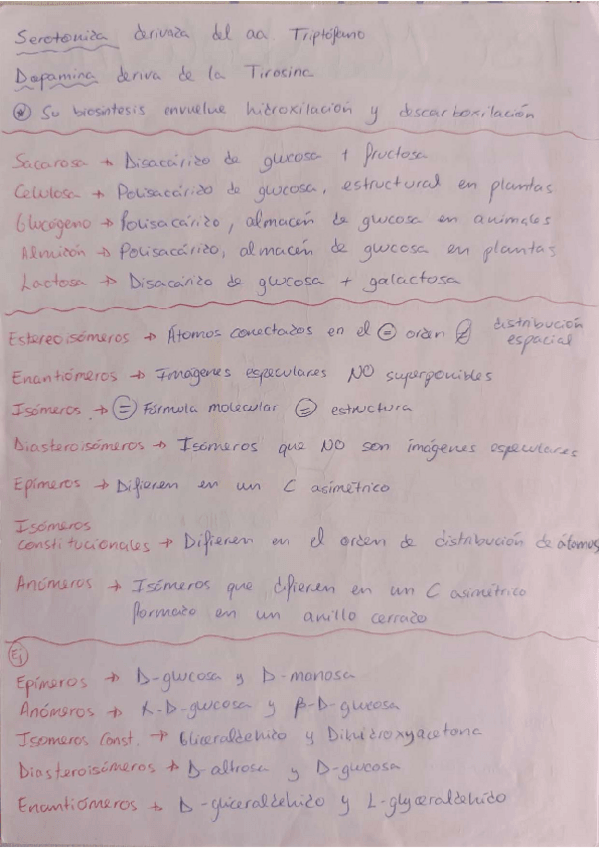 Serotonina derivada del aa Triptófano
Dopamina deriva de la Tirosina
* Su biosíntesis envuelve hidroxilación y descarboxilación
Sacarosa → Disacárido de glucosa + fructosa
Celulosa → Polisacárido de glucosa, estructural en plantas
Glucógeno → Polisacárido, almacén de glucosa en animales
Almidón → Polisacárido, almacén de glucosa en plantas
Lactosa → Disacárido de glucosa + galactosa
Estereoisómeros → Átomos conectados en el = orden ≠ distribución espacial
Enantiómeros → Imágenes especulares NO superponibles
Isómeros → = Fórmula molecular = estructura
Diasteroisómeros → Isómeros que NO son imágenes especulares
Epímeros → Difieren en un C asimétrico
Isómeros
constitucionales → Difieren en el orden de distribución de átomos
Anómeros → Isómeros que difieren en un C asimétrico
formado en un anillo cerrado
Ej
Epímeros → D-glucosa y D-manosa
Anómeros → α-D-glucosa y β-D-glucosa
Isomeros Const. → Gliceraldehido y Dihidroxyacetona
Diasteroisómeros → D-altrosa y D-glucosa
Enantiómeros → D-gliceraldehido y L-glyceraldehido